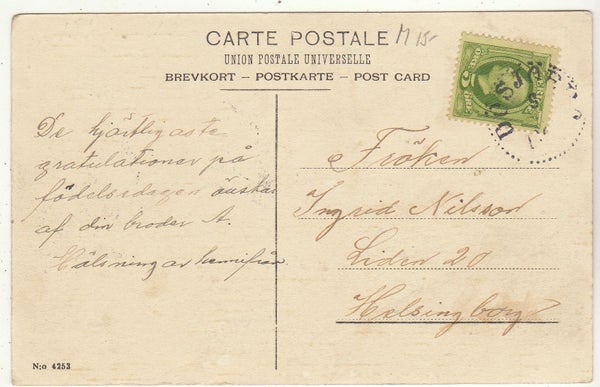 M 15-
CARTE POSTALE
UNION POSTALE UNIVERSELLE
BREVKORT – POSTKARTE – POST CARD
DÖSJÖBRO
De hjärtligaste
gratulationer på
födelsedagen önskas
af din broder A.
Hälsningar hemifrån
Fröken
Ingrid Nilsson
Liden 20
Helsingborg
N:o 4253